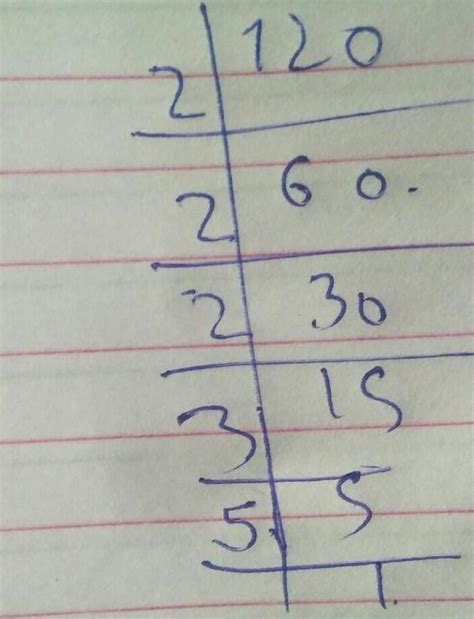 2 120
2 60.
2 30
3 15
5 5
1